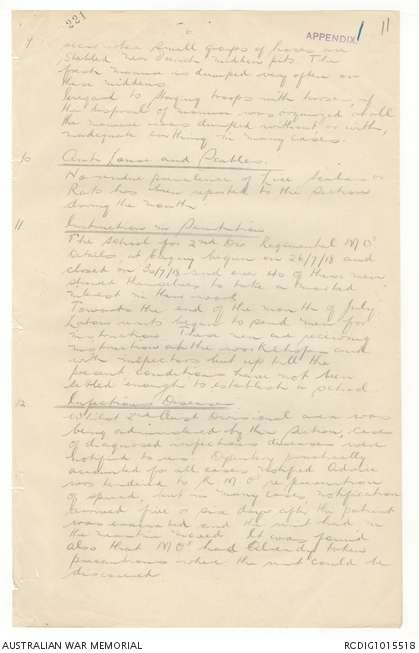 221
APPENDIX 1 11
9 seen when small groups of horses are
stabled near French midden pits. The
fresh manure is dumped very often on
these middens.
Regard to staying troops with horses, if
the disposal of manure was organized at all
the manure was dumped without, or with,
inadequate covering in many cases.
10 Anti Louse and Scabies.
No undue prevalence of Lice Scabies or
Rats has been reported to the Section
during the month
11 Instruction in Sanitation
The School for 2nd Div Regimental M.O's
Details, at began on 26/7/18 and
closed on 30/7/18 and over 40 of these men
showed themselves to take a marked
interest in their work.
Towards the end of the month of July
Labour units began to send men for
instruction. These men are receiving
instruction at the workshops and
with inspectors but up till the
present conditions have not been
settled enough to establish a school
12 Infectious Diseases
Whilst 2nd Aust Divisional area was
being administered by this Section, cases
of diagnosed infectious diseases were
notified to us. Dysentery practically
accounted for all cases notified. Advice
was tendered to R.M.O's re prevention
of spread, but in many cases notification
arrived five or six days after the patient
was evacuated and the unit had in
the meantime moved. It was found
also that M.O's had already taken
precautions where the unit could be
discovered
AUSTRALIAN WAR MEMORIAL
RCDIG1015518